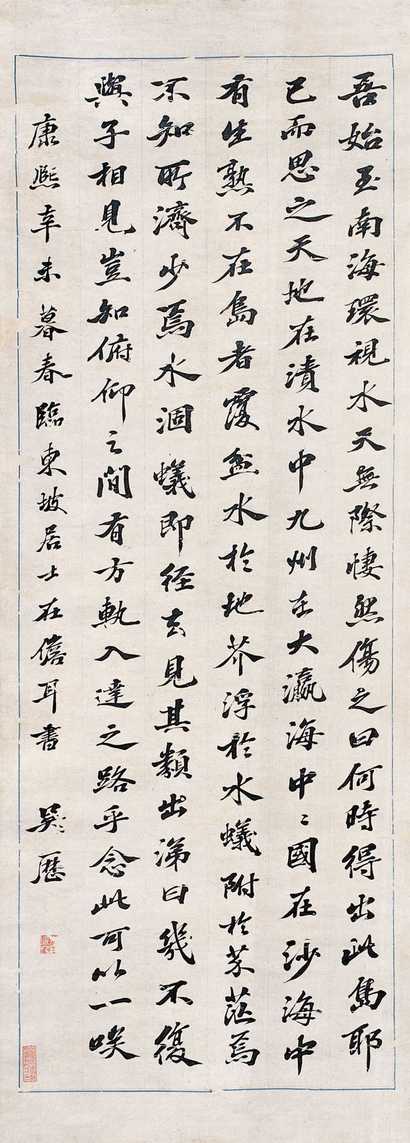 吾始至南海環視水天無際悽然傷之曰何時得出此島耶
已而思之天地在漬水中九州在大瀛海中〻國在沙海中
有生熟不在島者覆盆水於地芥浮於水蟻附於芥茫焉
不知所濟少焉水涸蟻即徑去見其類出涕曰幾不復
與子相見豈知俯仰之間有方軌八達之路乎念此可以一咲
康熙辛未暮春臨東坡居士在儋耳書 吳歷